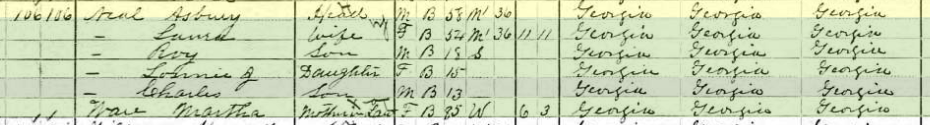 106 106 Neal Asbury Head M B 58 M1 36 Georgia Georgia Georgia
— Laura Wife F B 54 M1 36 11 11 Georgia Georgia Georgia
— Roy Son M B 18 S Georgia Georgia Georgia
— Lonnie J Daughter F B 15 Georgia Georgia Georgia
— Charles Son M B 13 Georgia Georgia Georgia
Ware Martha Mother in Law F B 85 W 6 3 Georgia Georgia Georgia